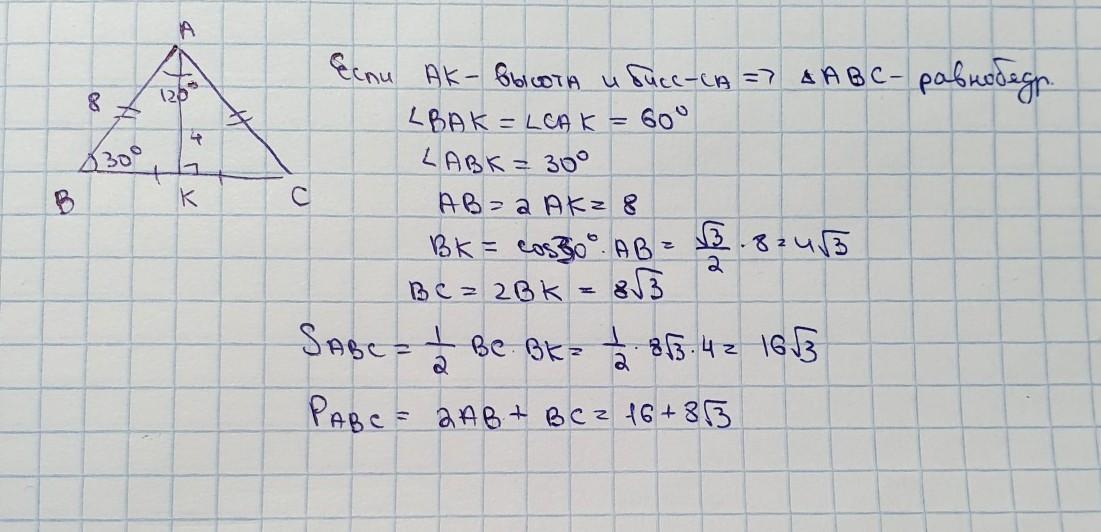 A
8
120°
4
30°
B
K
C
Если AK - высота и бисс-са => ΔABC - равнобедр.
∠BAK = ∠CAK = 60°
∠ABK = 30°
AB = 2 AK = 8
BK = cos30° · AB = √3/2 · 8 = 4√3
BC = 2BK = 8√3
S ABC = 1/2 BC · BK = 1/2 · 8√3 · 4 = 16√3
P ABC = 2AB + BC = 16 + 8√3